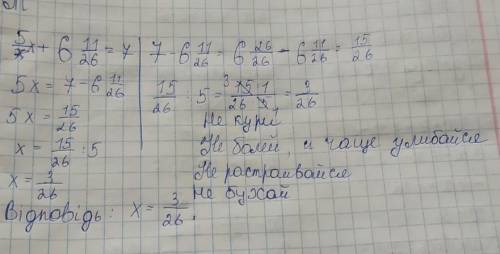 5/x x + 6 11/26 = 7
5x = 7 - 6 11/26
5x = 15/26
x = 15/26 : 5
x = 3/26
Відповідь: x = 3/26.
7 - 6 11/26 = 6 26/26 - 6 11/26 = 15/26
15/26 : 5 = 15·1/26 = 3/26
Не кури
Не болей, и чаще улибайся
Не растраивайся
Не бухай